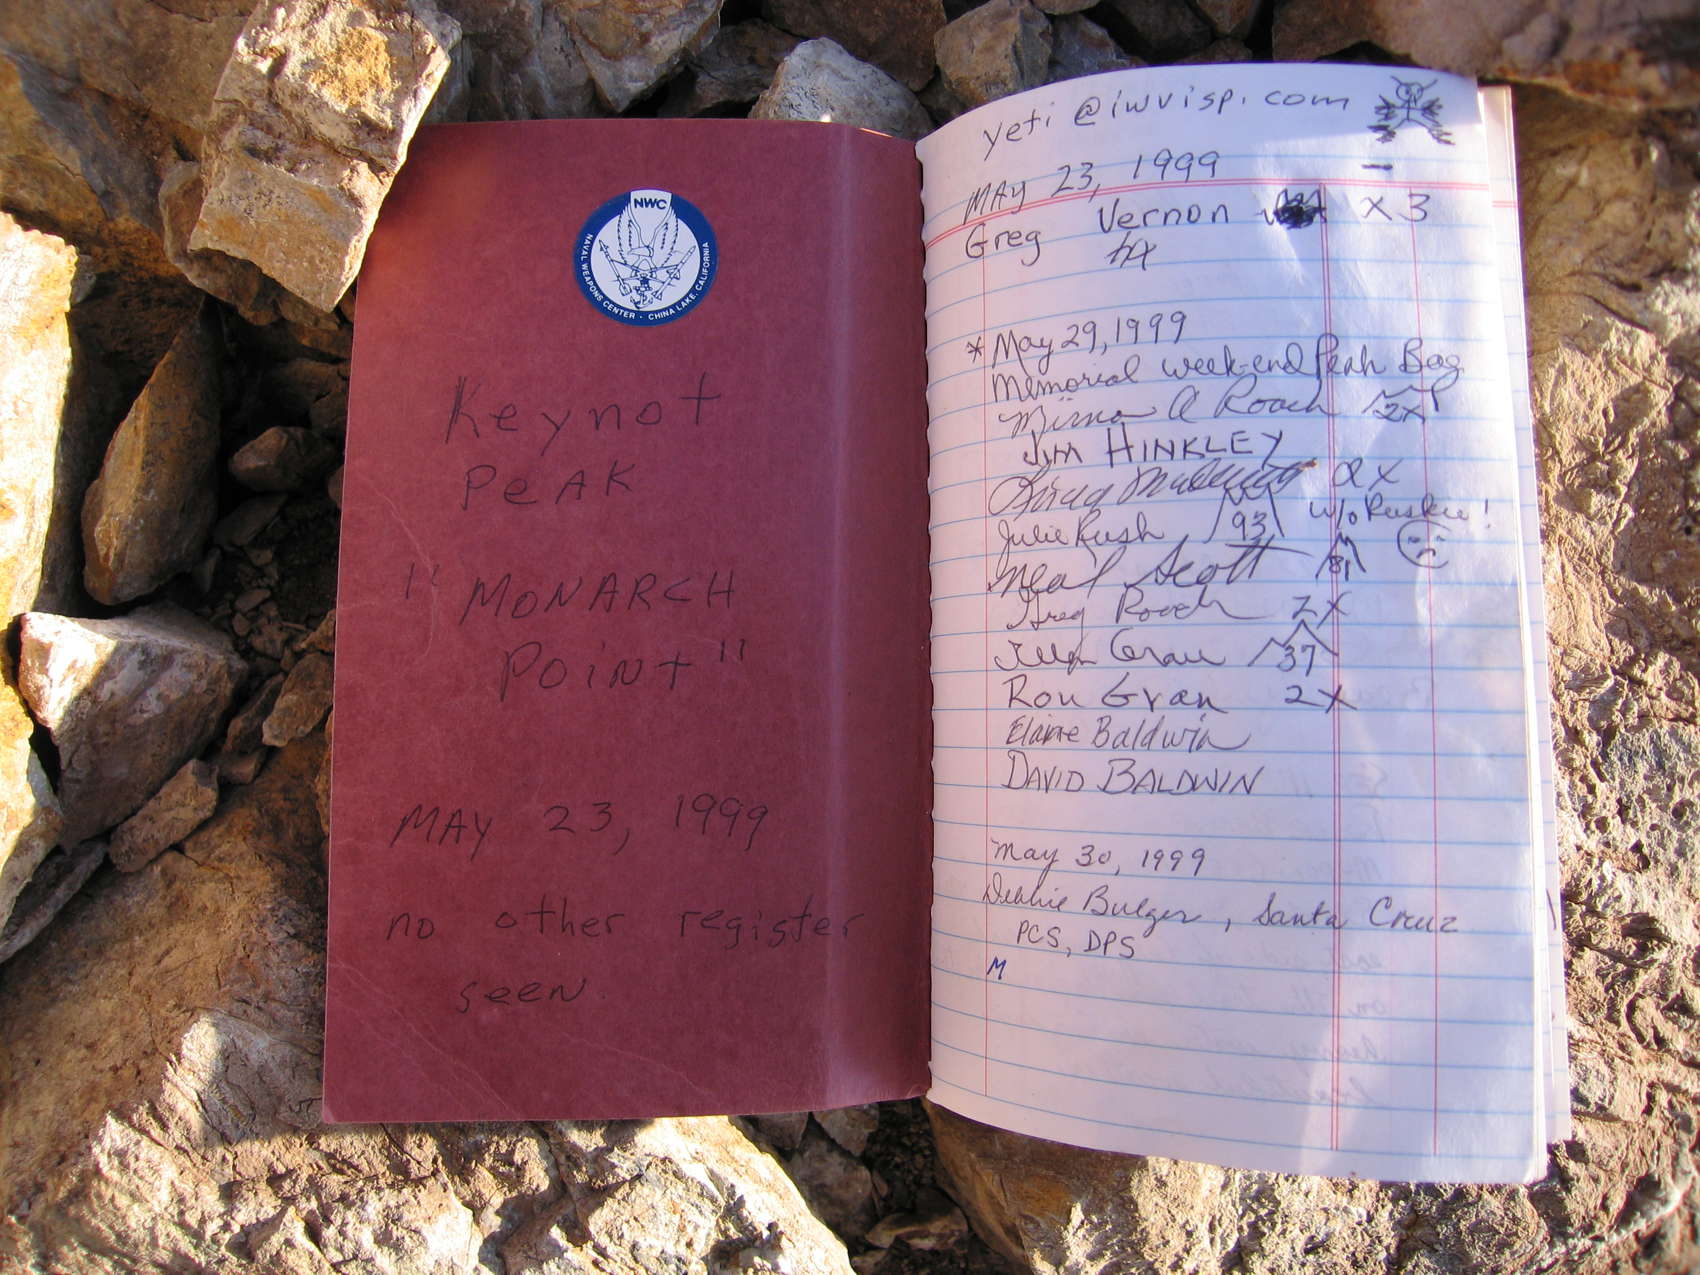 NWC
NAVAL WEAPONS CENTER · CHINA LAKE, CALIFORNIA
Keynot
PeAK
"MONARCH
Point"
MAY 23, 1999
no other register
seen.
yeti@iwvisp.com
MAY 23, 1999
Greg Vernon x3
*May 29, 1999
Memorial week-end Peak Bag
Mirna A Roach 2x
JIM HINKLEY
2X
Julie Rush 93 w/o Ruskie!
Neal Scott 81
Greg Roach 2X
37
Ron Gran 2X
Elaine Baldwin
DAVID BALDWIN
May 30, 1999
Debbie Bulger, Santa Cruz
PCS, DPS
M